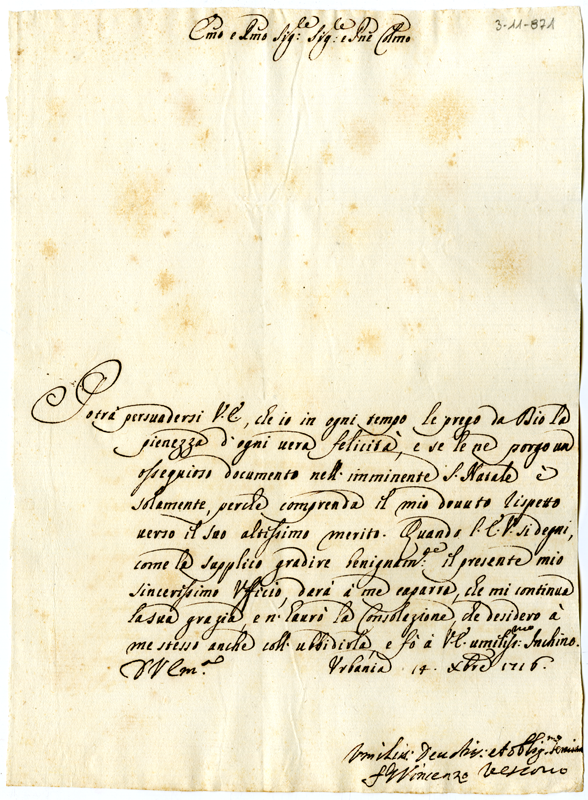 3-11-871
Emo e Rmo Sig:re Sig:re e Pne Colmo
Potrà persuadersi V. E., che io in ogni tempo le prego da Dio la
pienezza d'ogni vera felicità, e se le ne porgo un
ossequioso documento nell'imminente S. Natale è
solamente, perchè comprenda il mio dovuto rispetto
verso il suo altissimo merito. Quando l'E. V. si degni,
come la supplico gradire benignam:te il presente mio
sincerissimo Ufficio, darà à me caparra, che mi continua
la sua grazia, e n'haurò la Consolazione, che desidero à
me stesso anche coll'ubbidirla, e fò à V. E. umiliss:mo Inchino.
D V Em:za Urbania 14 Xbre 1716.
Umiliss: Deuotiss: et obblig:mo
Vincenzo Vescovo